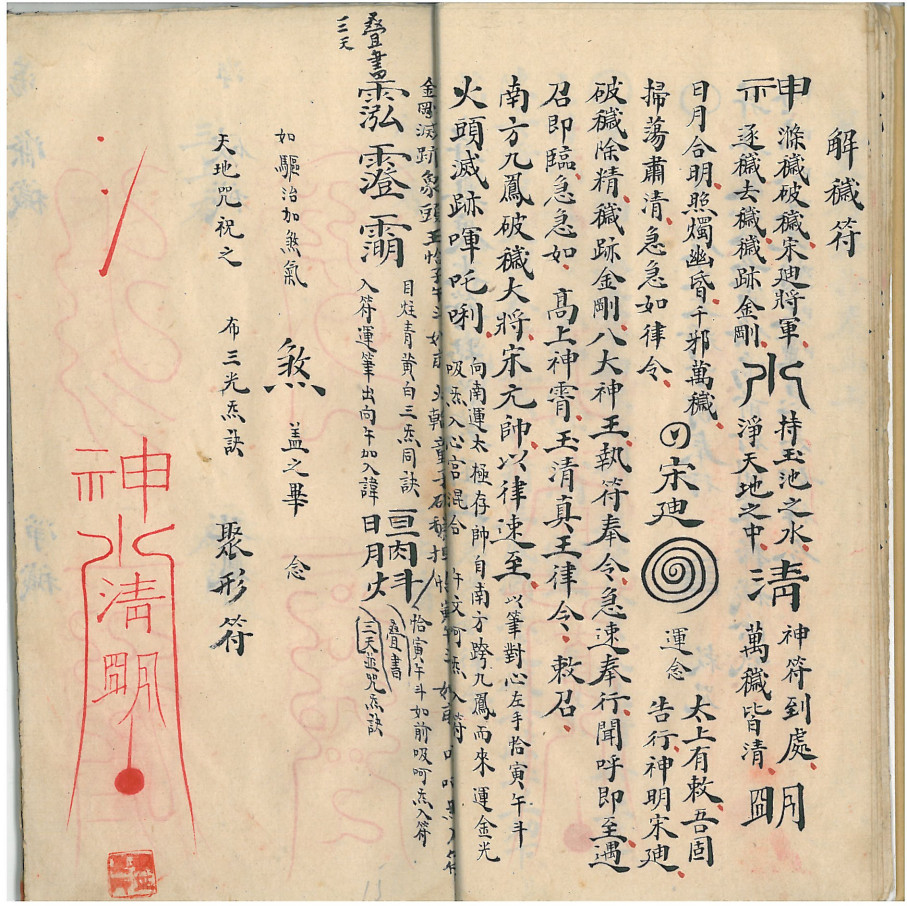 解穢符
神 滌穢破穢宋廸將軍、
逐穢去穢穢跡金剛、
水 持玉池之水、
淨天地之中、
清 神符到處、
萬穢皆清、
朙
日月合明照燭幽昏千邪萬穢、
掃蕩肅清、急急如律令、
宋廸
運念
太上有敕、吾固
告行、神明宋廸、
破穢除精、穢跡金剛、八大神王、執符奉令、急速奉行、聞呼即至、遇
召即臨、急急如、高上神霄、玉清真王律令、敕召、
南方九鳳破穢大將、宋元帥、以律速至、
以筆對心左手恰寅午斗
火頭滅跡㖷吒唎、
向南運太極存帥自南方跨九鳳而來運金光
吸炁入心宮混合
午文呵炁入符
金剛滅跡象頭王
疊書
三天
霐
目炷青黃白三炁同訣
入符運筆出向午加入諱
日月
疊書
三天並咒炁訣
恰寅午斗如前吸呵炁入符
如驅治加煞氣
煞
蓋之畢
念
天地咒祝之
布三光炁訣
聚形符
神
水
清
朙